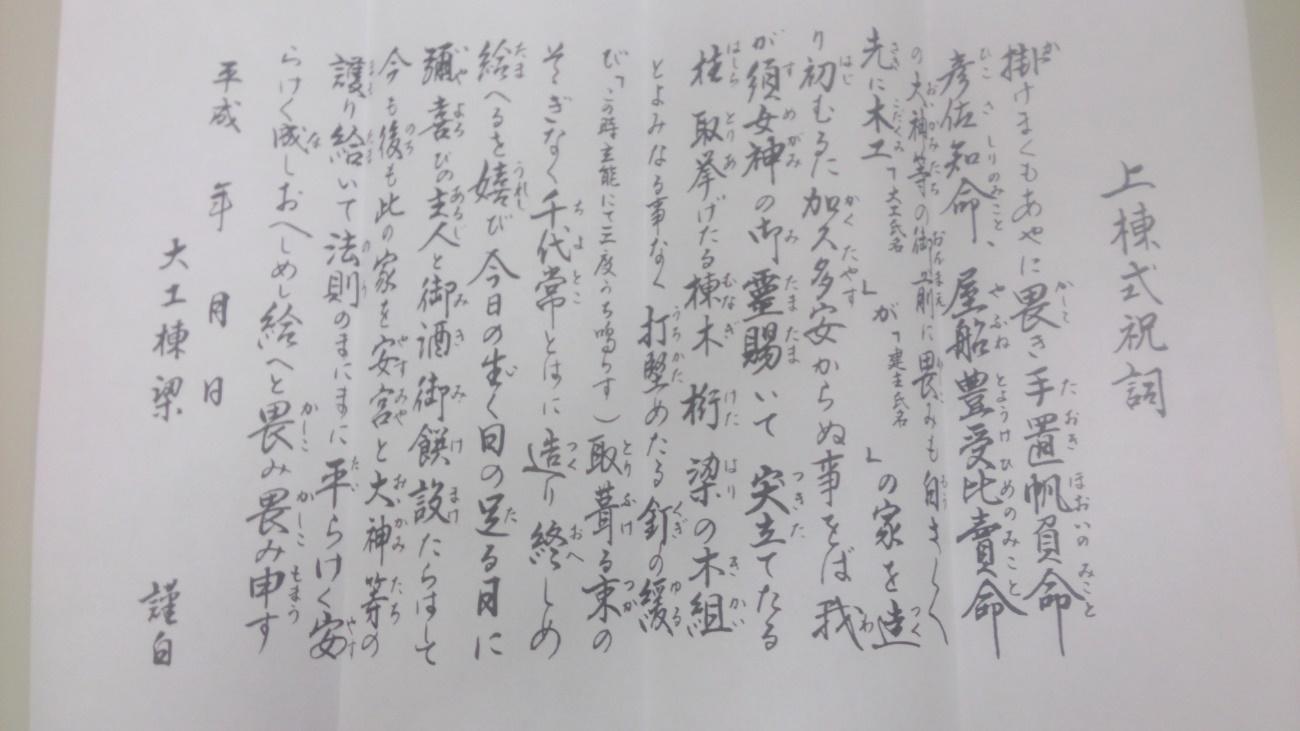 上棟式祝詞
掛けまくもあやに畏き手置帆負命
彦佐知命、屋船豊受比賣命
の大神等の御前に畏みも白さく
先に木工「大工氏名」が「建主氏名」の家を造
り初むるた加久多安からぬ事をば我
が須女神の御霊賜いて突立てたる
柱取挙げたる棟木桁梁の木組
とよみなる事なく打堅めたる釘の緩
び「この時主能にて三度うち鳴らす)取葺る束の
そゝぎなく千代常とはに造り終しめ
給へるを嬉び今日の生く日の足る日に
彌喜びの主人と御酒御饌設たらはして
今も後も此の家を安宮と大神等の
護り給いて法則のまにまに平らけく安
らけく成しおへしめし給へと畏み畏み申す
平成 年 月 日
大工棟梁 謹白